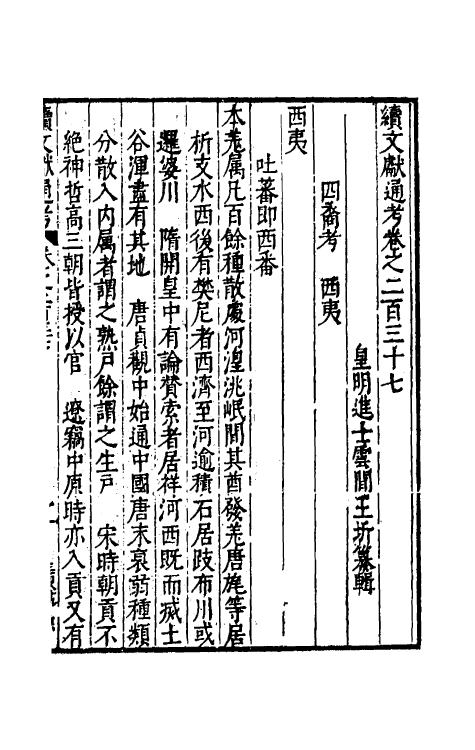 續文獻通考卷之二百三十七
皇明進士雲間王圻纂輯
四裔考　西夷
西夷
吐蕃即西番
本羌属凡百餘種散處河湟洮岷間其酋發羌唐旄等居
析支水西後有樊尼者西濟至河逾積石居跂布川或
邏婆川　隋開皇中有論賛索者居牂河西既而㓕土
谷渾盡有其地　唐貞觀中始通中國唐末衰弱種類
分散入内属者謂之熟戸餘謂之生戸　宋時朝貢不
絶神哲高三朝皆授以官　遼竊中原時亦入貢又有
續文獻通考　卷之二百三十七　一